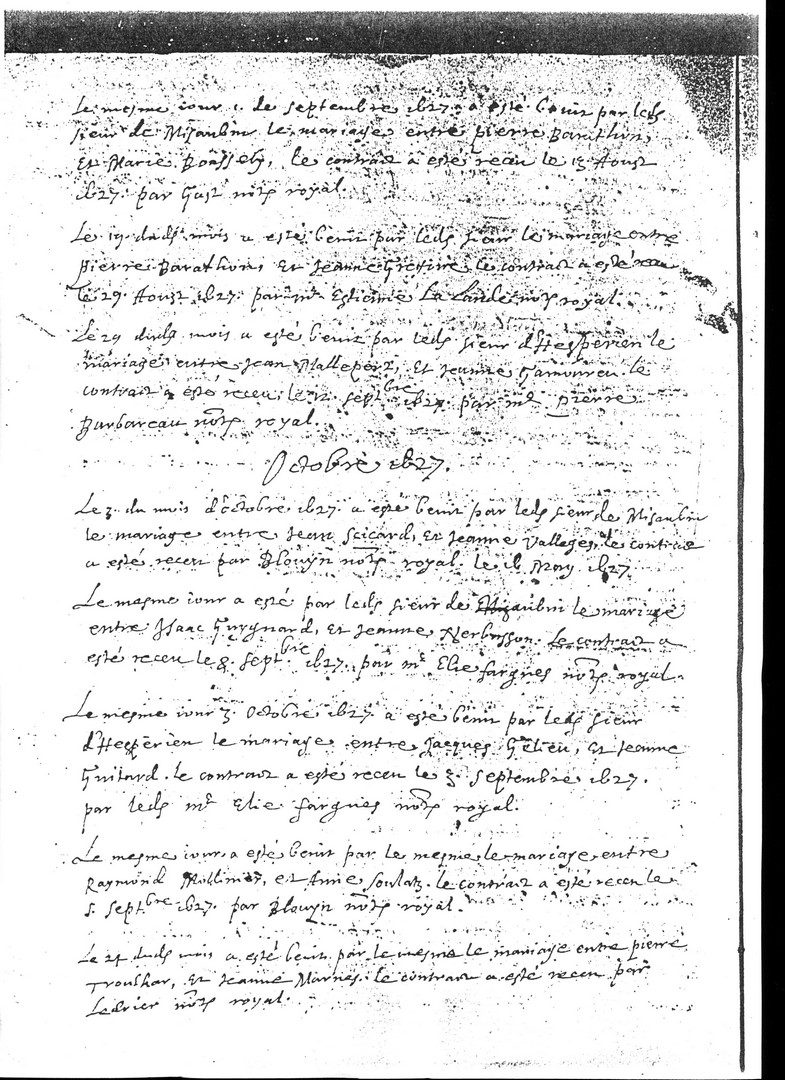 Le mesme iour 1. de septembre 1627. a esté benit par leds
sieur de Misaubin le mariage entre pierre Barathon,
Et Marie Boassely, le contract a esté receu le 13 Aoust
1627. par Gast notre royal.
Le 19 duds mois a esté benit par leds sieur le mariage entre
pierre Barathon, Et Jeanne le contract a esté receu
le 29. Aoust 1627. par me Estienne La Lande notre royal.
Le 29 duds mois a esté benit par leds sieur d'Hesperien le
mariage entre Jean Mallepert, Et Jeanne le
contract a esté receu le 12. septbre 1627. par me pierre
Barbareau notre royal.
Octobre 1627.
Le 3. du mois d'octobre 1627. a esté benit par leds sieur de Misaubin
le mariage entre Jean Sicard, Et Jeanne Valleges, le contract
a esté receu par Blouyn notre royal. le 16 May 1627.
Le mesme iour a esté par leds sieur de Misaubin le mariage
entre Isaac Guygnard, Et Jeanne Nerbusson. Le contract a
esté receu le 8. septbre 1627. par me Elie fargues notre royal.
Le mesme iour 3. Octobre 1627. a esté benit par leds sieur
d'Hesperien le mariage entre Jacques Gelieu, Et Jeanne
Guitard. le contract a esté receu le 3. Septembre 1627.
par leds me Elie fargues notre royal.
Le mesme iour, a esté benit par le mesme le mariage entre
Raymond et Anne Soulatz. le contract a esté receu le
5. septbre 1627. par Blouyn notre royal.
Le 24 duds mois a esté benit par le mesme le mariage entre pierre
Troushar, Et Jeanne Marnes. le contract a esté receu par
Ledrier notre royal.